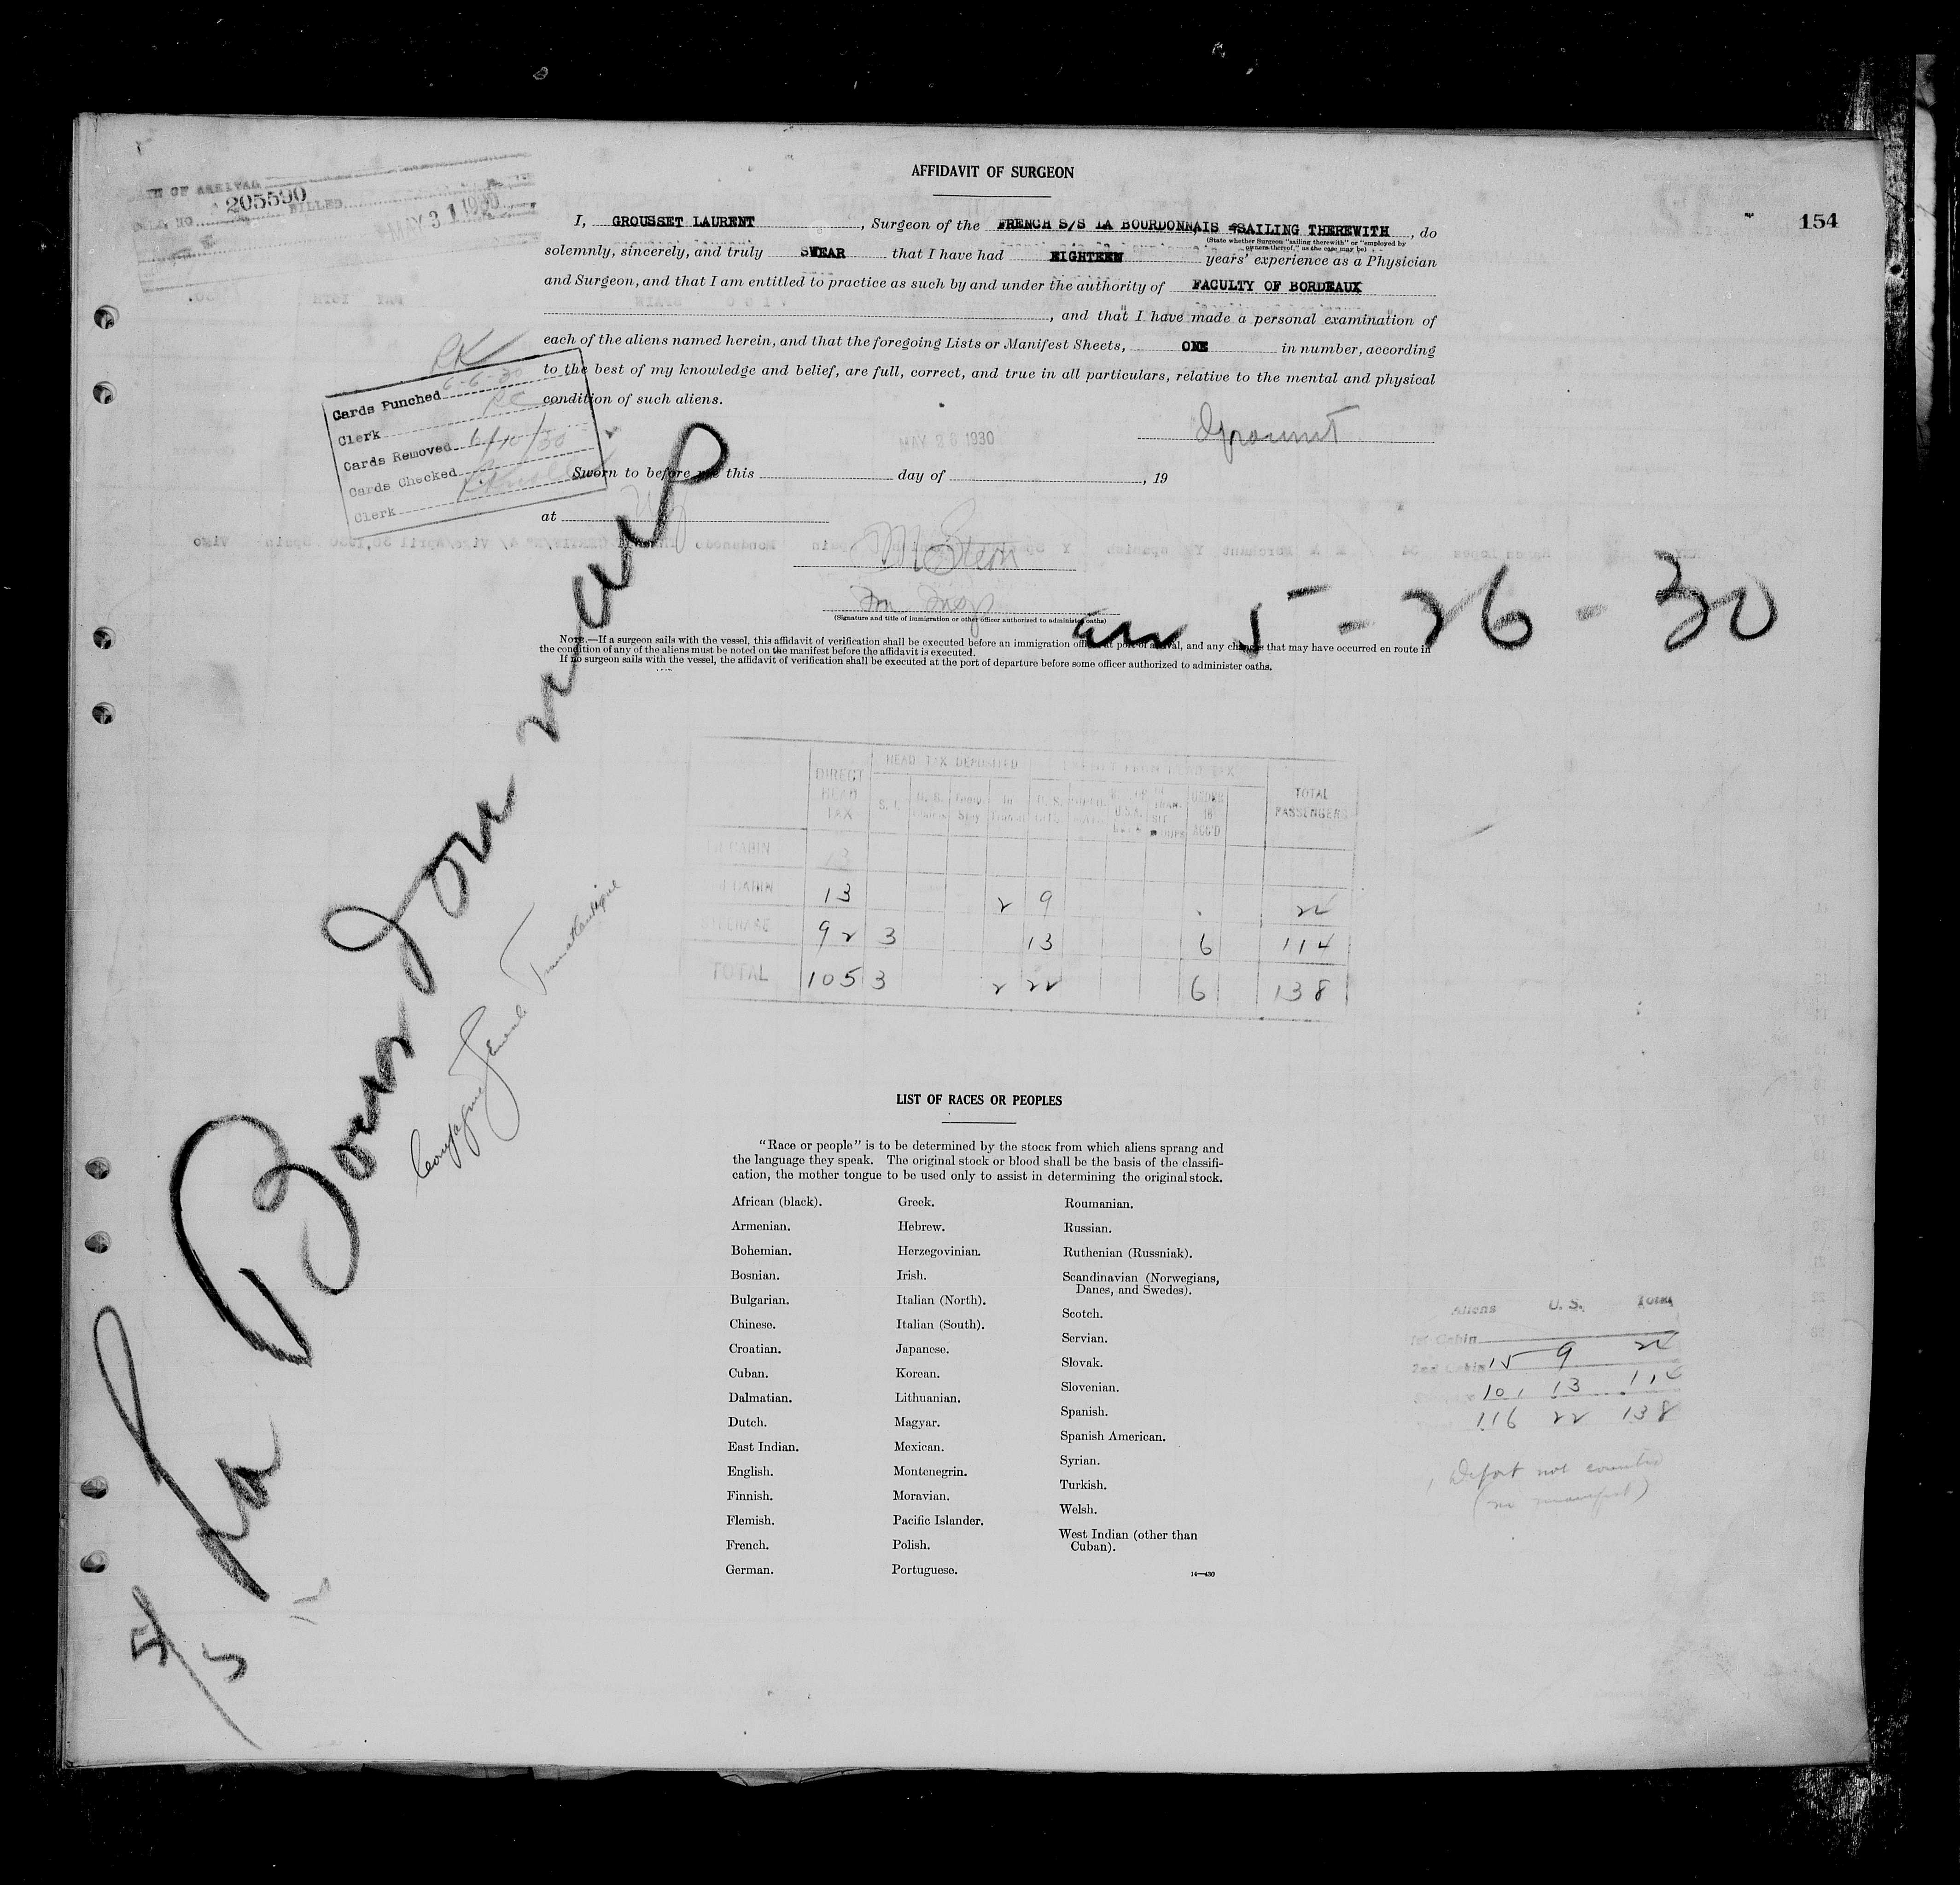 AFFIDAVIT OF SURGEON
154
205590
FILLED
MAY 31 1930
I, GROUSSET LAURENT, Surgeon of the FRENCH S/S LA BOURDONNAIS SAILING THEREWITH, do
(State whether Surgeon "sailing therewith" or "employed by
owners thereof," as the case may be)
solemnly, sincerely, and truly SWEAR that I have had EIGHTEEN years' experience as a Physician
and Surgeon, and that I am entitled to practice as such by and under the authority of FACULTY OF BORDEAUX
, and that I have made a personal examination of
each of the aliens named herein, and that the foregoing Lists or Manifest Sheets, ONE in number, according
to the best of my knowledge and belief, are full, correct, and true in all particulars, relative to the mental and physical
condition of such aliens.
Cards Punched 6-6-30
Clerk
Cards Removed 6/10/30
Cards Checked
Clerk
MAY 26 1930
Sworn to before me this day of , 19
at
M Stern
(Signature and title of immigration or other officer authorized to administer oaths)
5-26-30
NOTE.—If a surgeon sails with the vessel, this affidavit of verification shall be executed before an immigration officer at port of arrival, and any changes that may have occurred en route in
the condition of any of the aliens must be noted on the manifest before the affidavit is executed.
If no surgeon sails with the vessel, the affidavit of verification shall be executed at the port of departure before some officer authorized to administer oaths.
La Bourdonnais
Compagnie Generale Transatlantique
5/5
HEAD TAX DEPOSITED
DIRECT HEAD TAX
S. I.
Temp. Stay
In Transit
UNDER 16 ACC'D
TOTAL PASSENGERS
CABIN 13
CABIN 13 2 9 24
STEERAGE 92 3 13 6 114
TOTAL 105 3 2 22 6 138
LIST OF RACES OR PEOPLES
"Race or people" is to be determined by the stock from which aliens sprang and
the language they speak. The original stock or blood shall be the basis of the classifi-
cation, the mother tongue to be used only to assist in determining the original stock.
African (black).
Armenian.
Bohemian.
Bosnian.
Bulgarian.
Chinese.
Croatian.
Cuban.
Dalmatian.
Dutch.
East Indian.
English.
Finnish.
Flemish.
French.
German.
Greek.
Hebrew.
Herzegovinian.
Irish.
Italian (North).
Italian (South).
Japanese.
Korean.
Lithuanian.
Magyar.
Mexican.
Montenegrin.
Moravian.
Pacific Islander.
Polish.
Portuguese.
Roumanian.
Russian.
Ruthenian (Russniak).
Scandinavian (Norwegians,
Danes, and Swedes).
Scotch.
Servian.
Slovak.
Slovenian.
Spanish.
Spanish American.
Syrian.
Turkish.
Welsh.
West Indian (other than
Cuban).
14—430
Aliens U. S. Total
1st Cabin
2nd Cabin 15 9 24
101 13 114
116 22 138
1 Deport not counted
(no manifest)